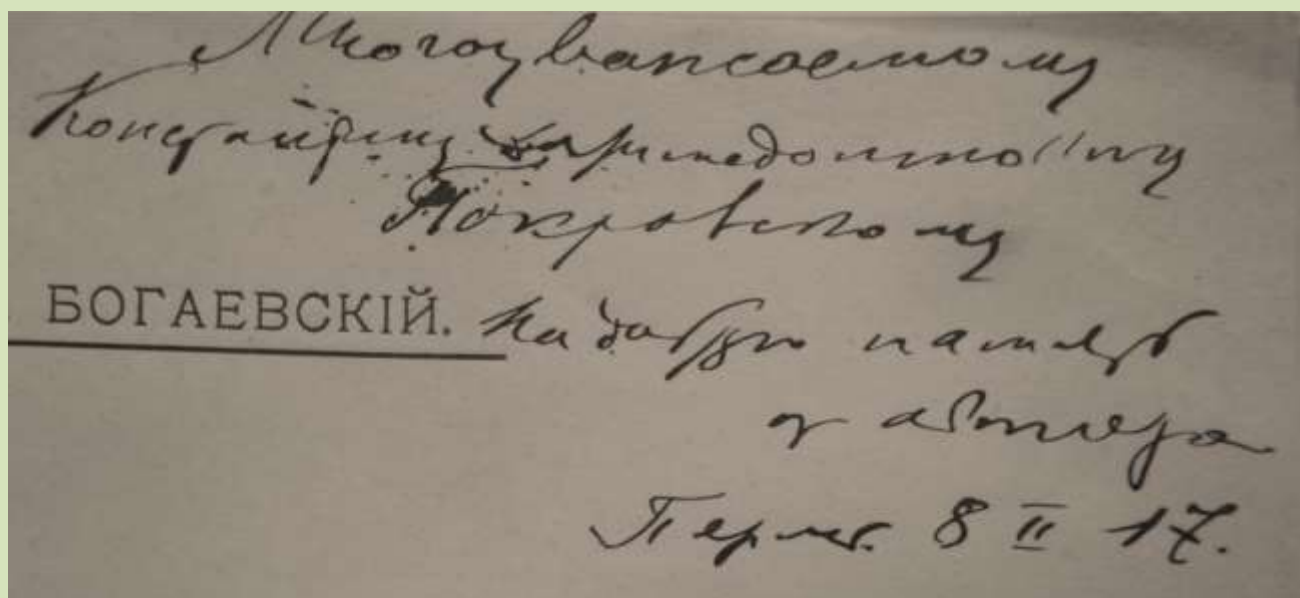 Многоуважаемому
Константину Доримедонтовичу
Покровскому
БОГАЕВСКІЙ. На добрую память
от автора
Пермь. 8 II 17.